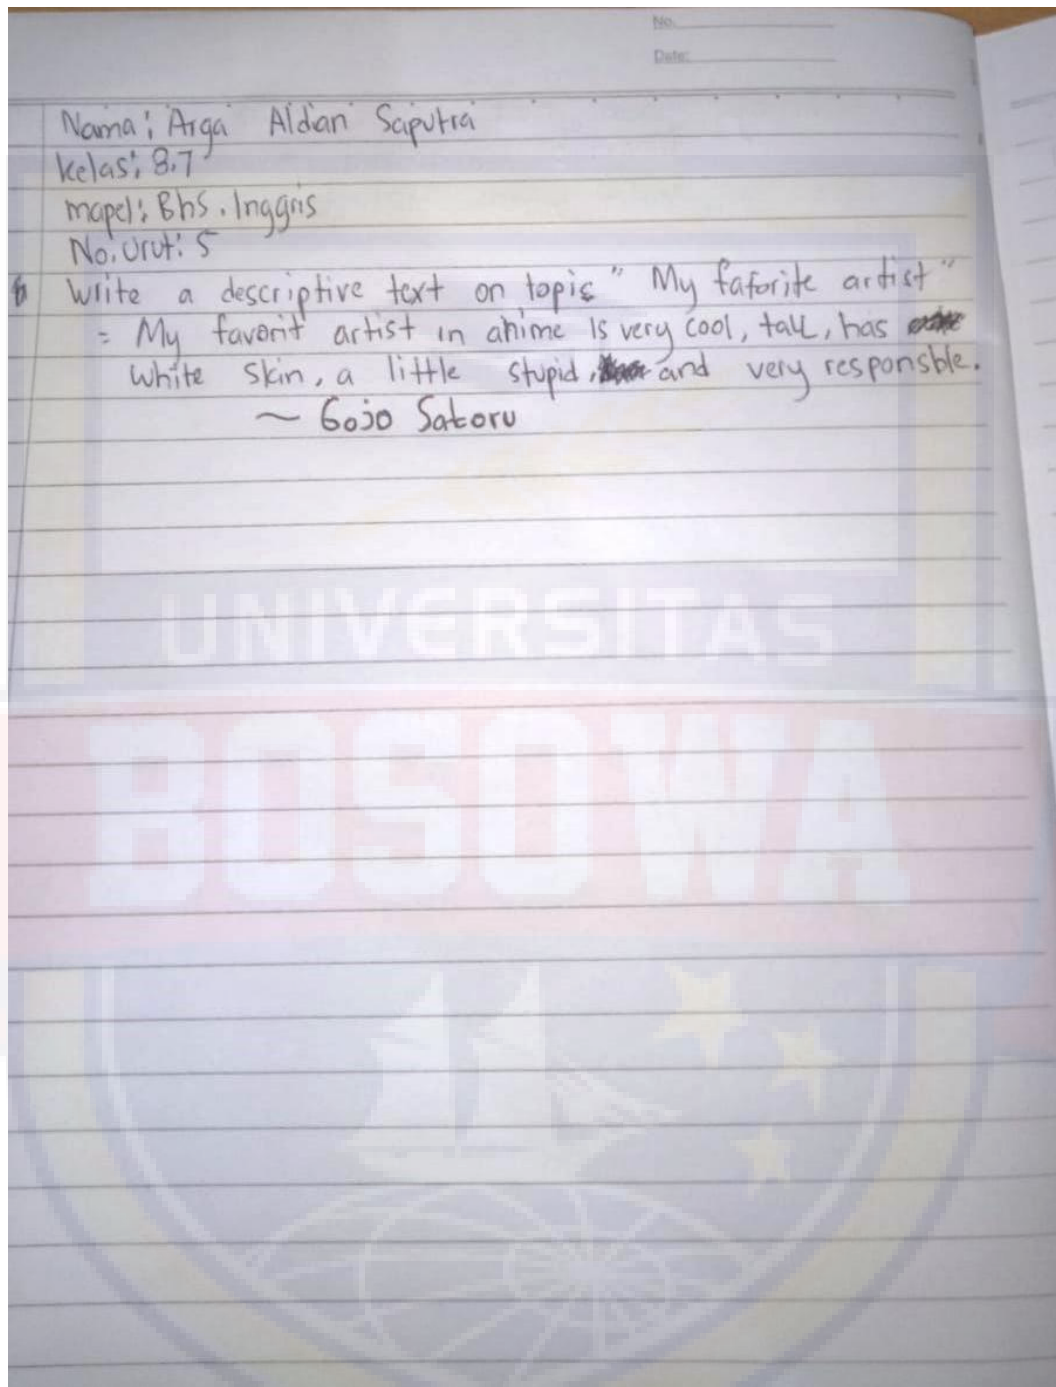 No.
Date:
Nama: Arga Aldan Saputra
Kelas: 8.7
mapel: Bhs. Inggris
No. Urut: 5
Write a descriptive text on topic "My faforite artist"
= My favorit artist in anime is very cool, tall, has
white skin, a little stupid, and very responsble.
~ Gojo Satoru
UNIVERSITAS
BOSOWA